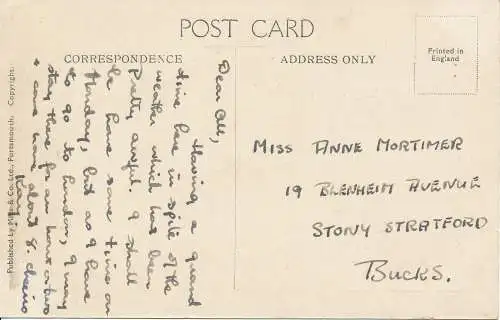 POST CARD
CORRESPONDENCE
ADDRESS ONLY
Printed in
England
Dear All,
Having a grand
time here in spite of the
weather which has been
Pretty awful. I shall
be home some time on
Monday, but as I have
to go to London, I may
stay there for an hour or two
& come home about 8. Cheerio
MISS ANNE MORTIMER
19 BLENHEIM AVENUE
STONY STRATFORD
BUCKS.
Published by Mills & Co. Ltd., Portsmouth. Copyright.